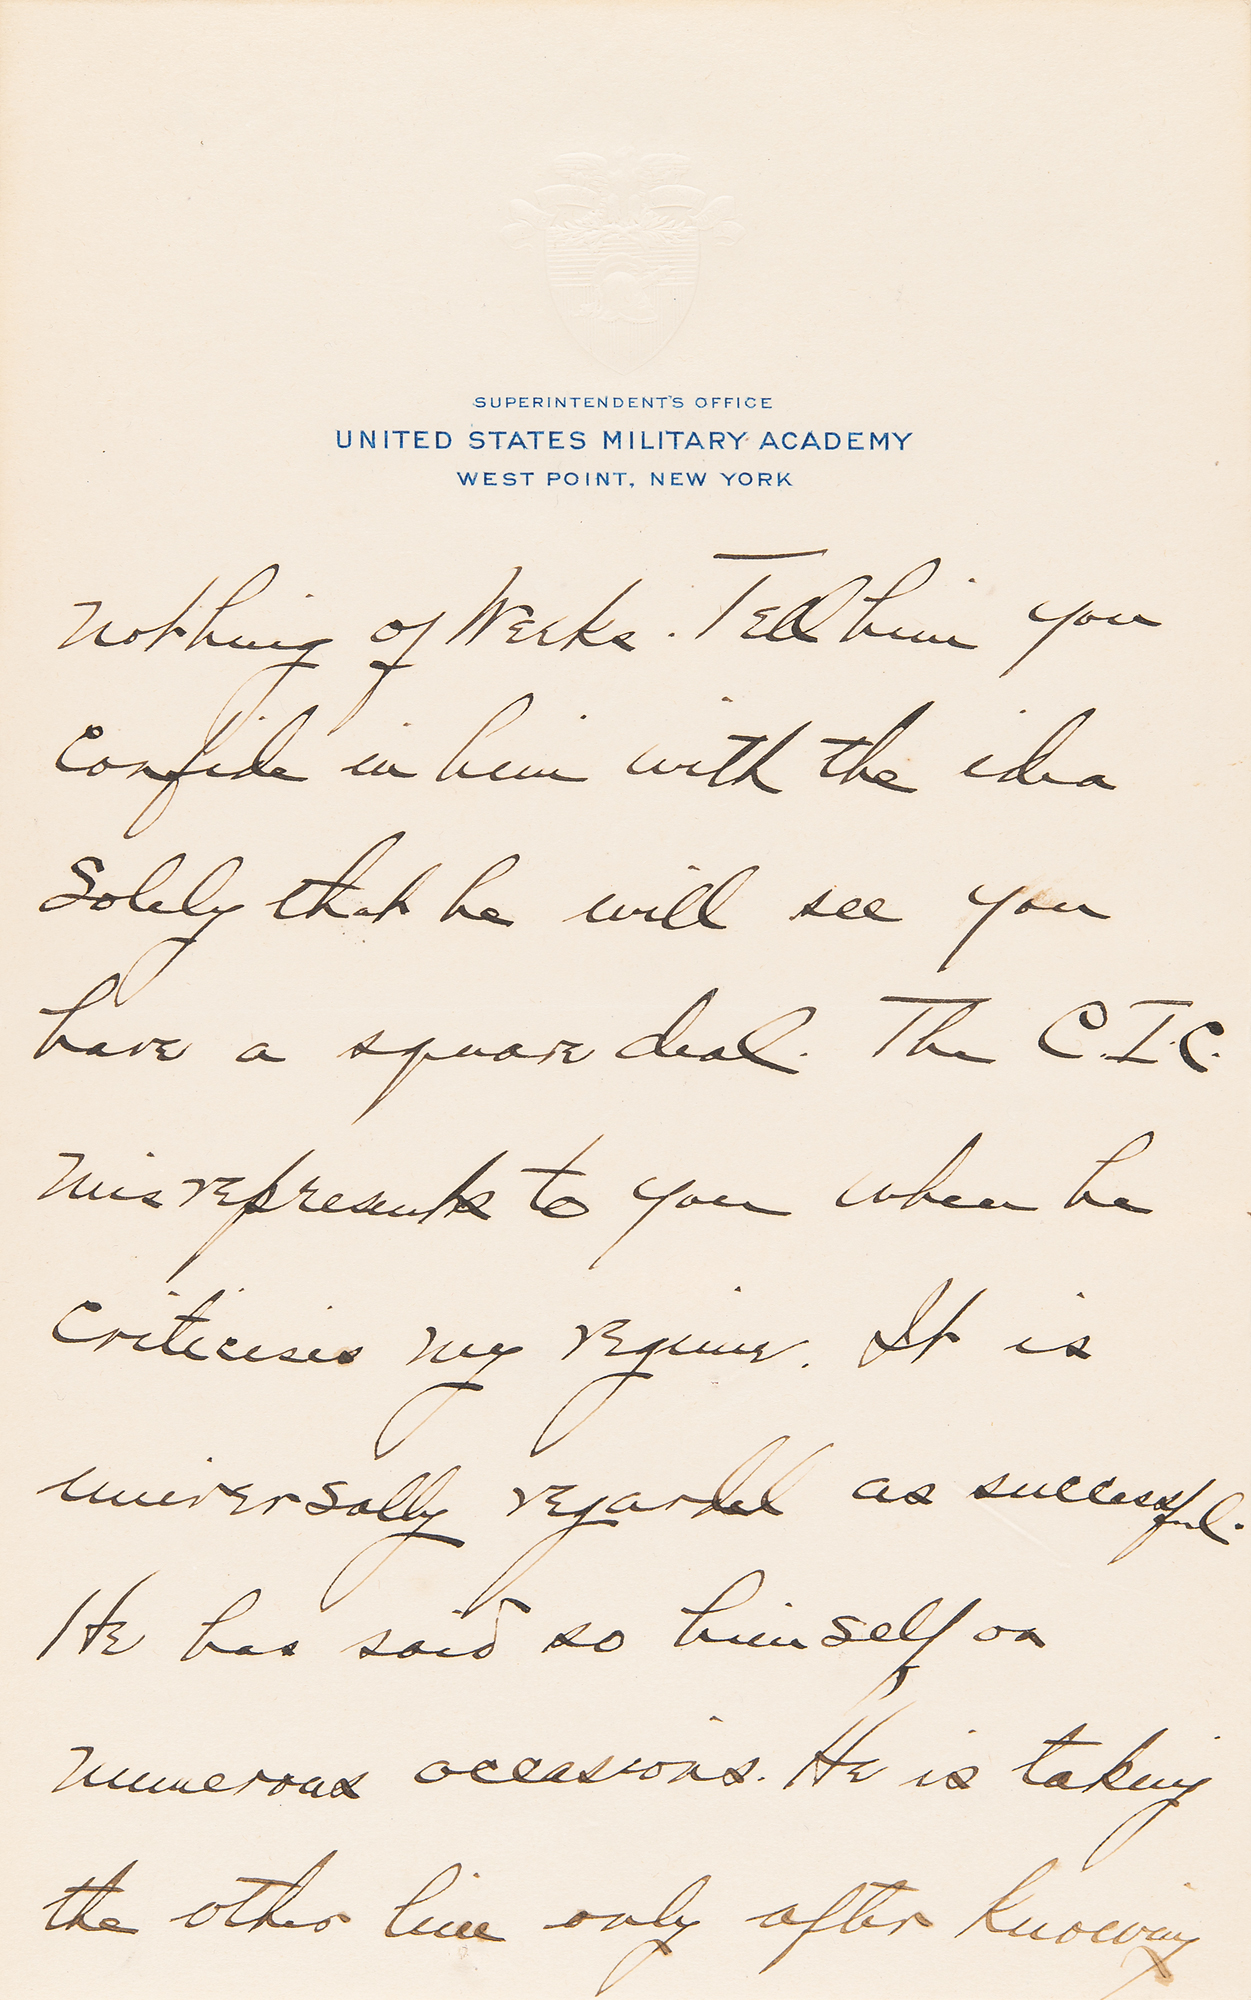 SUPERINTENDENT'S OFFICE
UNITED STATES MILITARY ACADEMY
WEST POINT, NEW YORK
nothing of Weeks. Tell him you
confide in him with the idea
solely that he will see you
have a square deal. The C.I.C.
misrepresents to you when he
criticises my regime. It is
universally regarded as successful.
He has said so himself on
numerous occasions. He is taking
the other line only after knowing